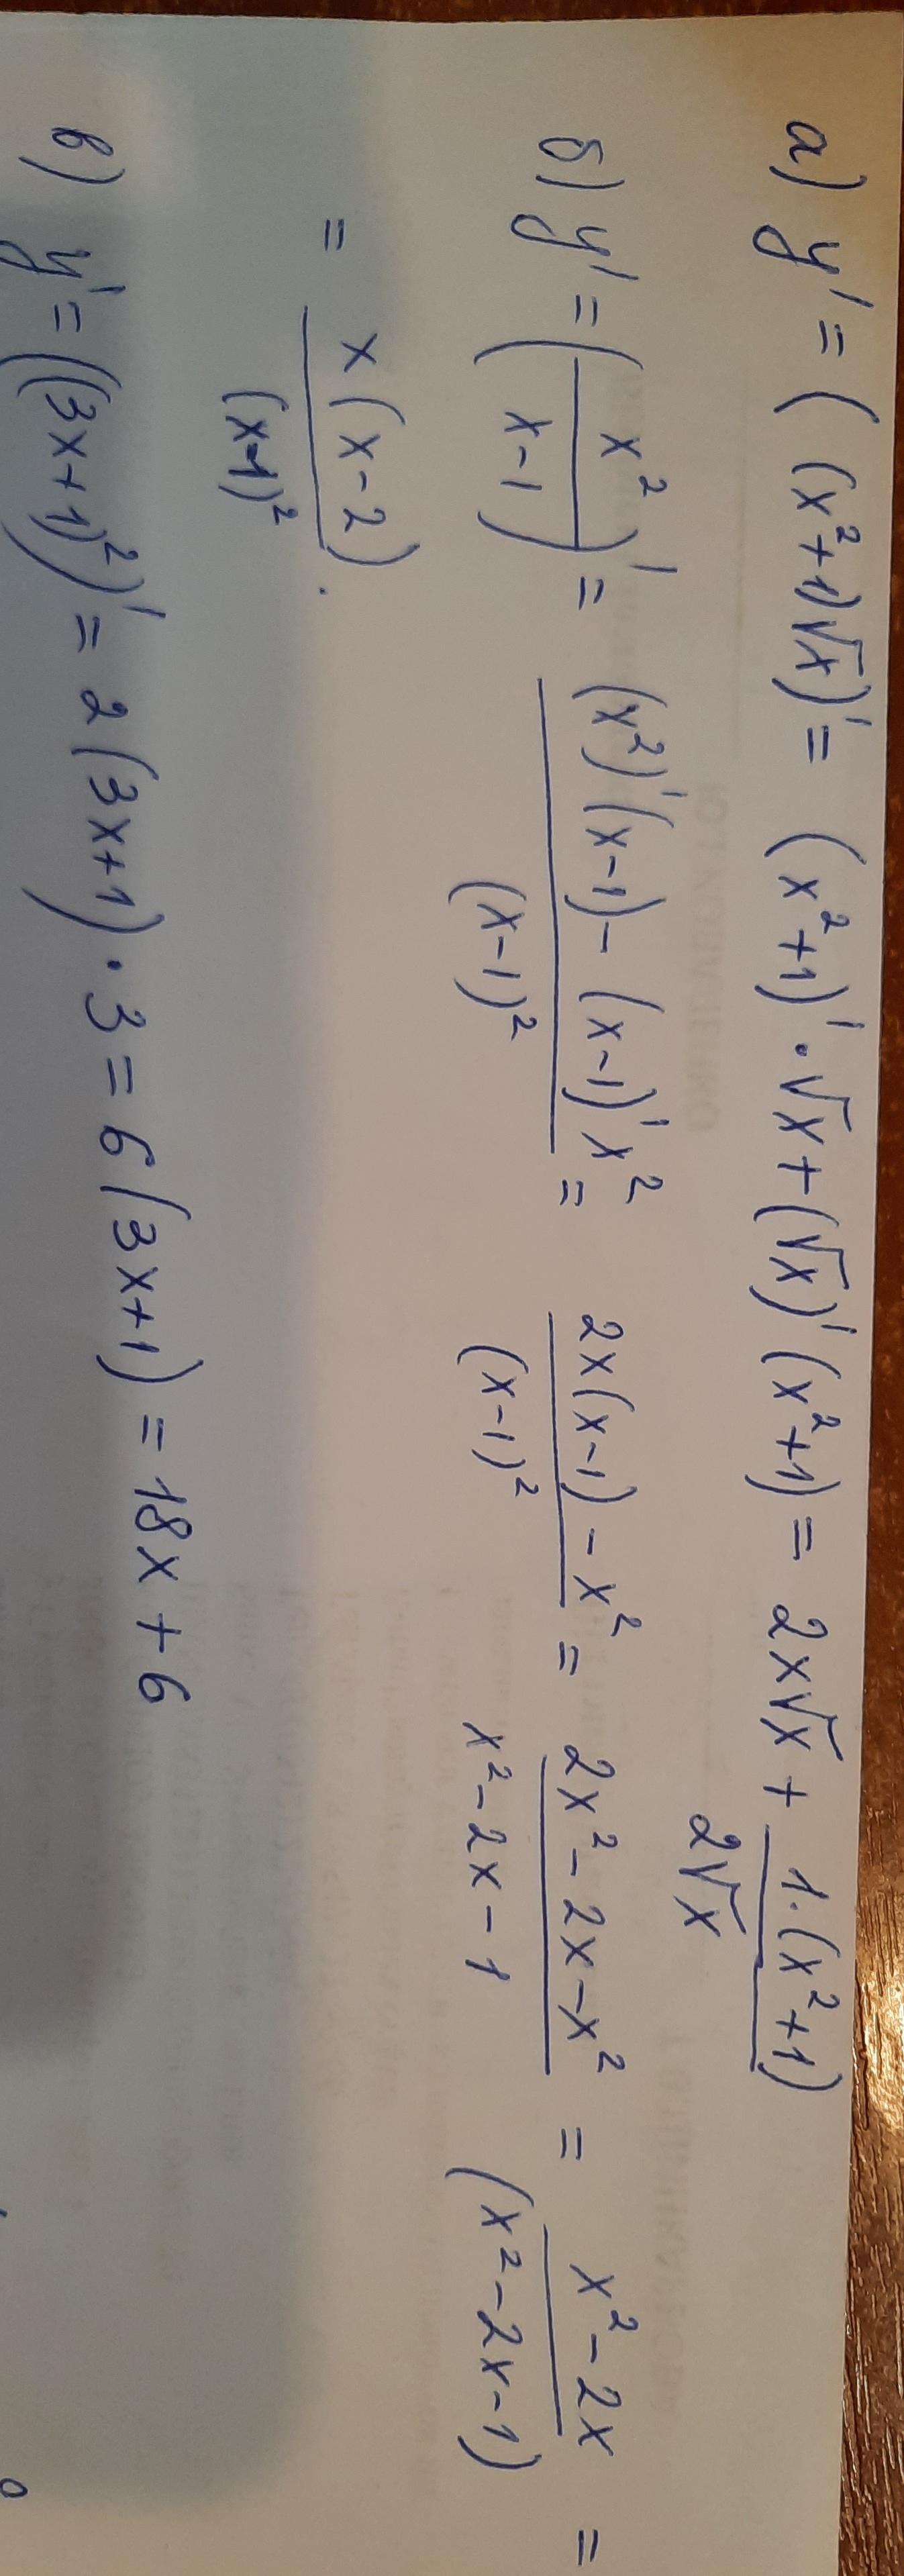 а) y' = ((x²+1)√x)' = (x²+1)'·√x + (√x)'(x²+1) = 2x√x + 1·(x²+1)/2√x
б) y' = (x²/x-1)' = (x²)'(x-1) - (x-1)'x²/(x-1)² = 2x(x-1) - x²/(x-1)² = 2x² - 2x - x²/x² - 2x - 1 = x² - 2x/(x² - 2x - 1) =
= x(x-2)/(x-1)².
в) y' = ((3x+1)²)' = 2(3x+1)·3 = 6(3x+1) = 18x + 6